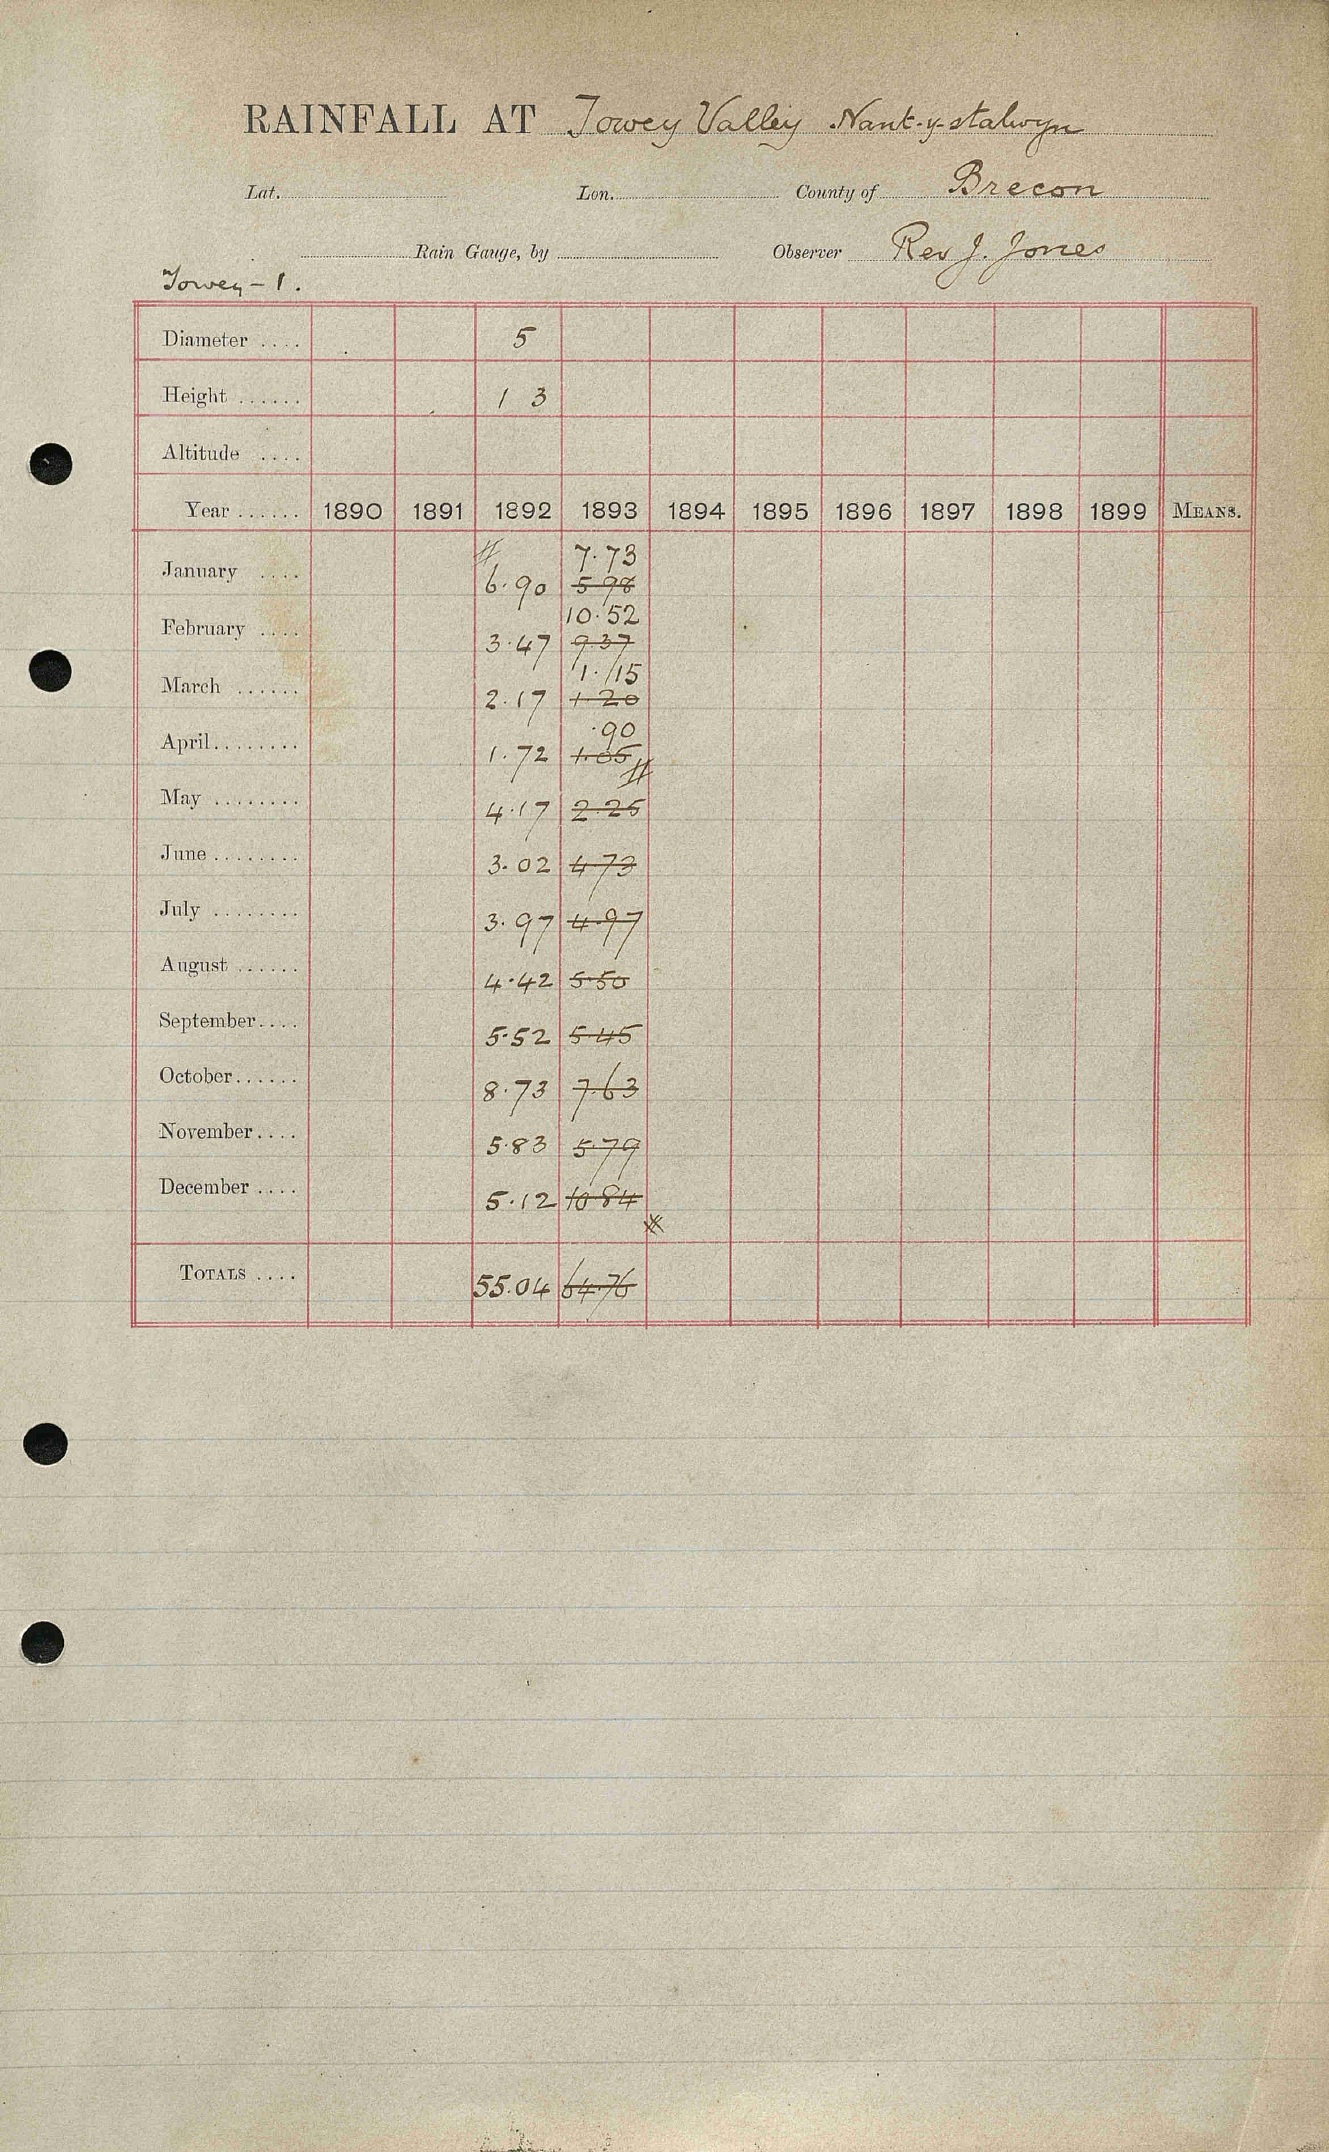 RAINFALL AT Towey Valley Nant-y-stalwyn
Lat. Lon. County of Brecon
Rain Gauge, by Observer Rev J. Jones
Towey - 1.
Diameter .... 5
Height ...... 1 3
Altitude ....
Year ...... 1890 1891 1892 1893 1894 1895 1896 1897 1898 1899 MEANS.
# 7.73
January .... 6.90 5.98
10.52
February .... 3.47 9.37
1.15
March ...... 2.17 1.20
.90
April........ 1.72 1.05
#
May ........ 4.17 2.25
June ........ 3.02 4.73
July ........ 3.97 4.97
August ...... 4.42 5.50
September.... 5.52 5.45
October...... 8.73 7.63
November.... 5.83 5.79
December .... 5.12 10.84
TOTALS .... 55.04 64.76